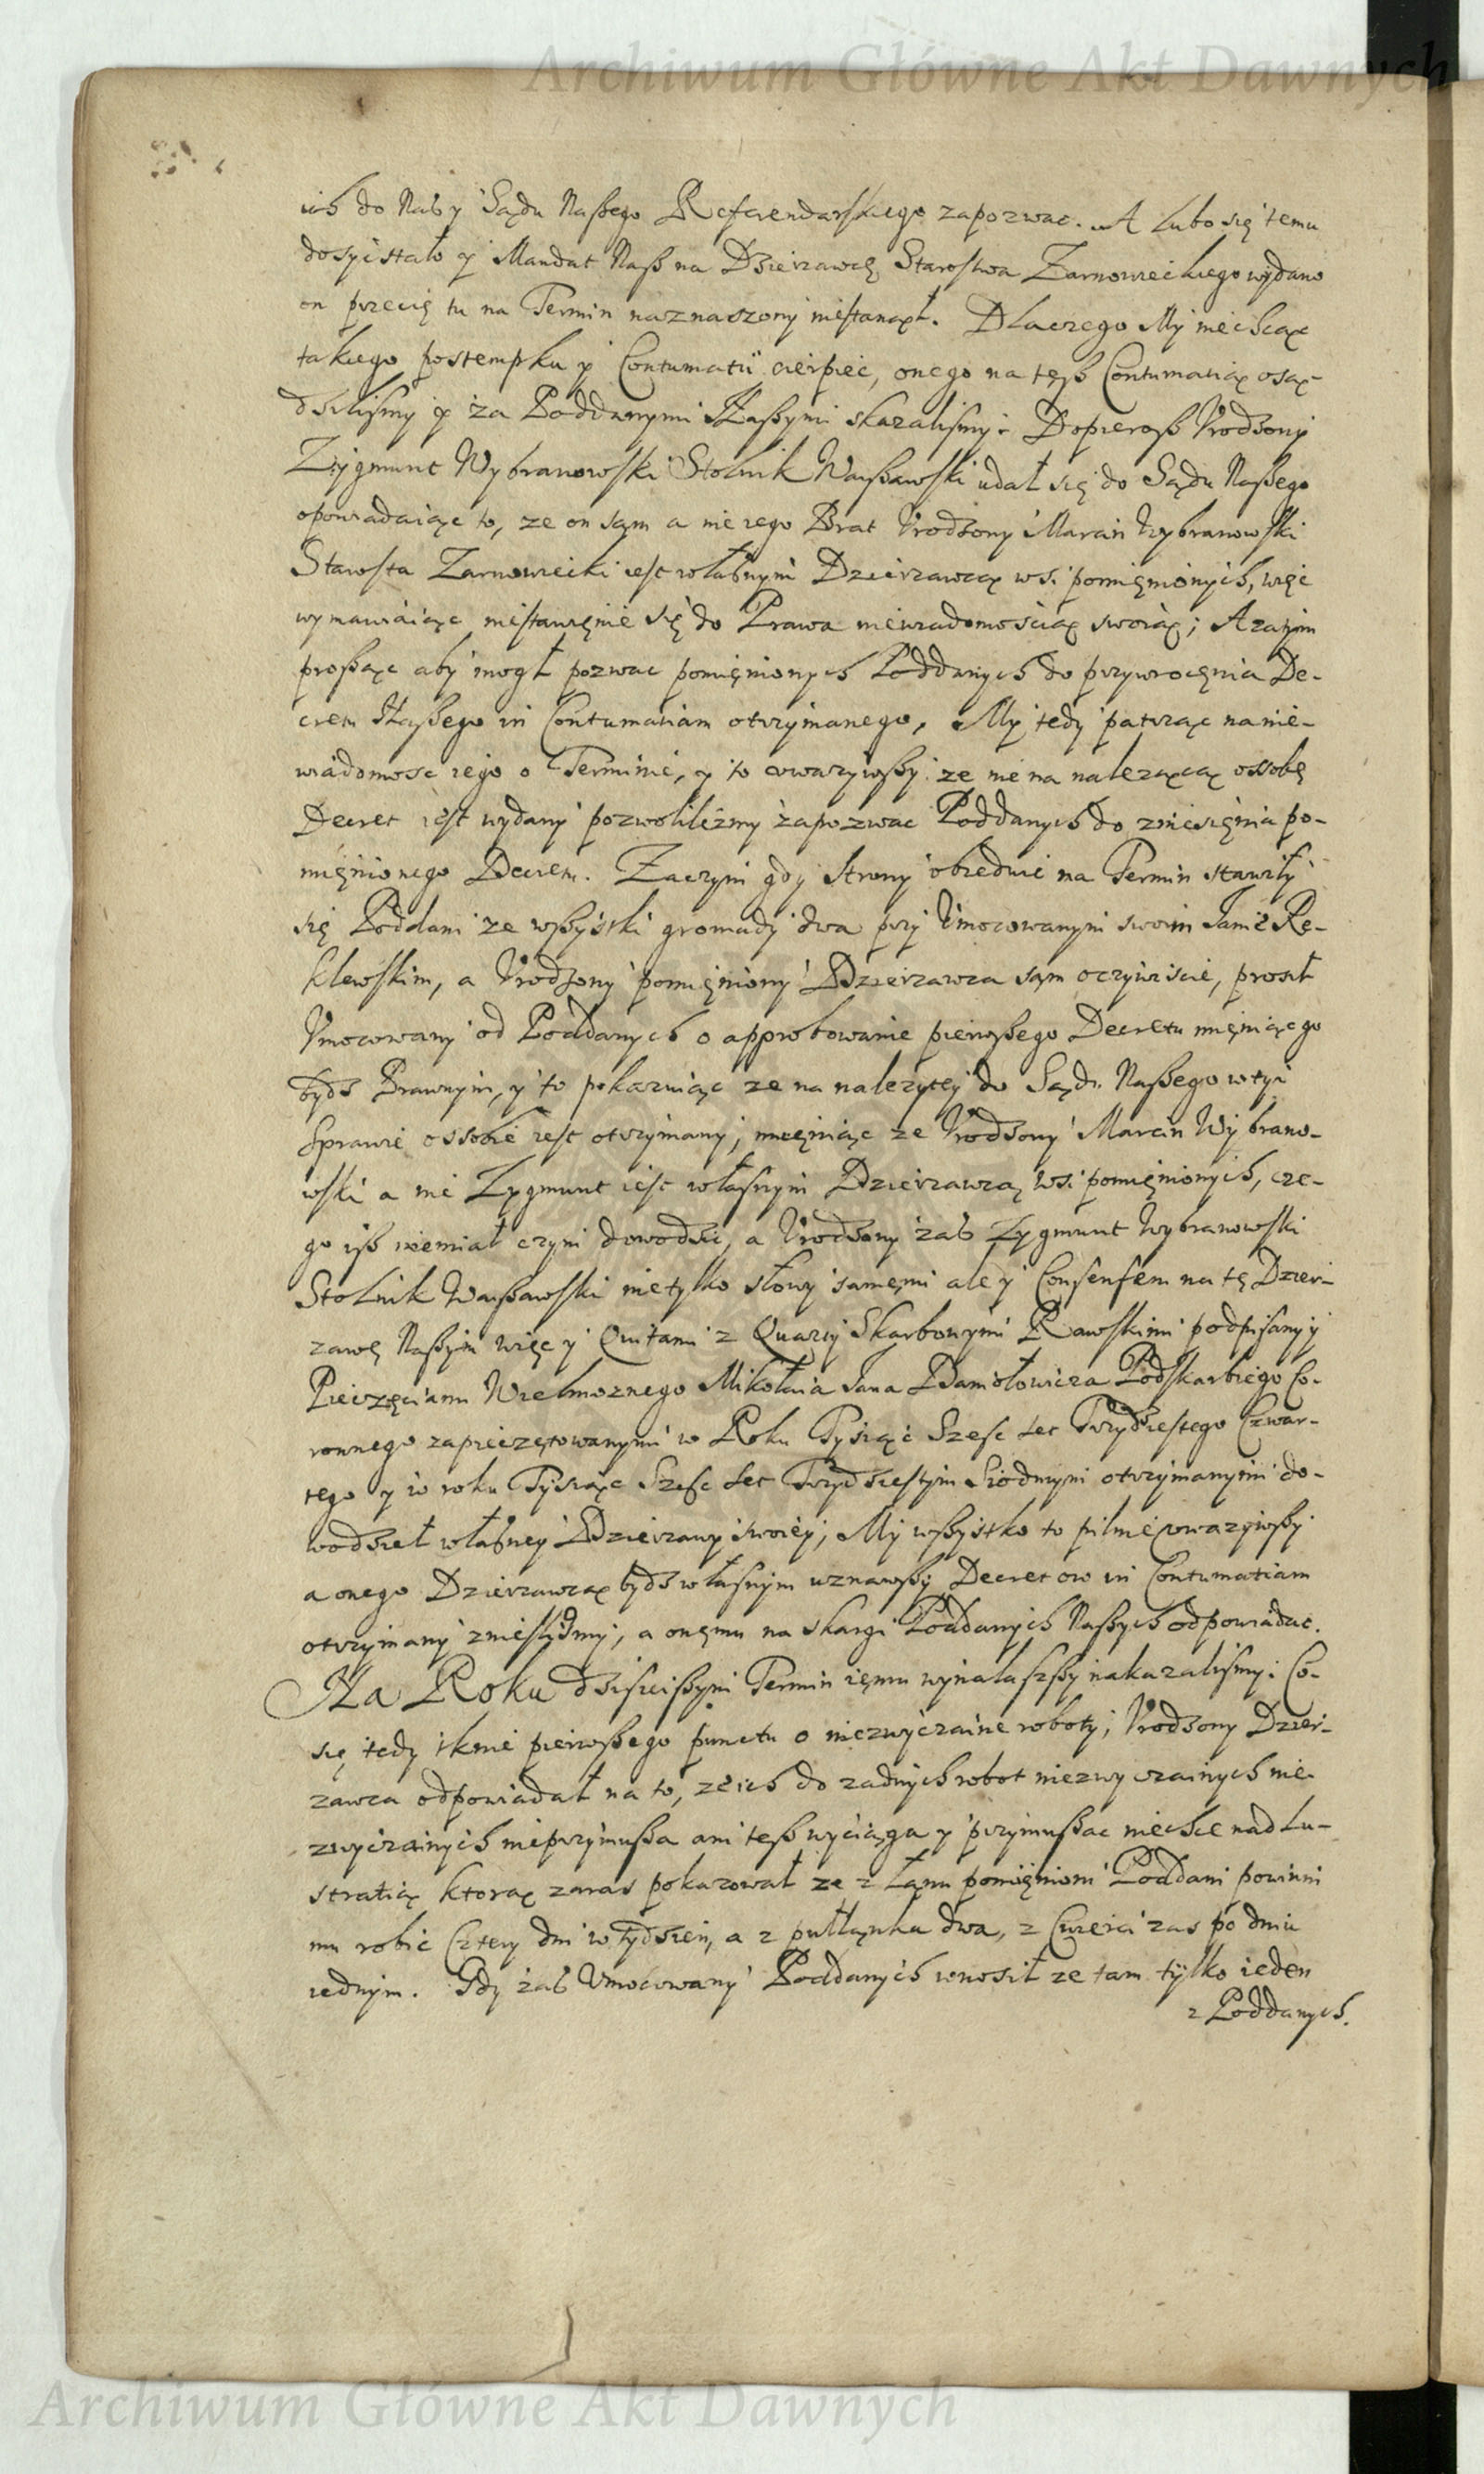 Archiwum Główne Akt Dawnych
ich do Nas y Sądu Naszego Referendarskiego zapozwac. A lubo się temu
dosyc stało y Mandat Nasz na Dzierzawcę Starostwa Zarnowieckiego wydano
on przecię tu na Termin naznaczony niestanął. Dlaczego My niechcąc
takiego postempku y Contumatii cierpiec, onego na tęsz Contumatią osą-
dzilismy y za Poddanymi Naszymi skazalismy. Dopierosz Vrodzony
Zygmunt Wybranowski Stolnik Warszawski udał się do Sądu Naszego
opowiadaiąc to, ze on sąm a nie iego Brat Vrodzony Marcin Wybranowski
Starosta Zarnowiecki iest własnym Dzierzawcą wsi pomięnionych, więc
wymawiaiąc niestawięnie się do Prawa niewiadomoscią swoią; A zatym
prosząc aby mogł pozwac pomięnionych Poddanych do przywrocęnia De-
cretu Naszego in Contumatiam otrzymanego, My tedy patrząc na nie-
wiadomosc iego o Terminie, y to uwazywszy ze nie na nalezącą ossobę
Decret iest wydany pozwolilismy zapozwac Poddanych do zniesięnia po-
mięnionego Decretu. Zaczym gdy strony obiedwie na Termin stawiły
się Poddani ze wszystki gromady dwa przy Vmocowanym swoim Janie Re-
klewskim, a Vrodzony pomięniony Dzierzawca sąm oczywiscie, prosił
Vmocowany od Poddanych o approbowanie pierwszego Decretu mięniącgo
bydz Prawnym, y to pokazuiąc ze na nalezytey do Sądu Naszego w tyi
Sprawie ossobie iest otrzymany, mięniąc ze Vrodzony Marcin Wybrano-
wski a nie Zygmunt iest własnym Dzierzawcą wsi pomięnionych, cze-
go isz niemiał czym dowodzic, a Vrodzony zas Zygmunt Wybranowski
Stolnik Warszawski nietylko słowy samęmi ale y Consensem na tę Dzier-
zawę Naszym więc y Quitami z Quarty Skarbowymi Rawskimi podpisany y
Pieczęciami Wielmoznego Mikołaia Jana Daniołowicza Podskarbiego Co-
ronnego zapieczętowanymi w Roku Tysiąc Szesc Set Trzydziestego Czwar-
tego y w roku Tysiąc Szesc Set Trzydziestym Siodmym otrzymanymi do-
wodził własney Dzierzawy swoiey; My wszystko to pilnie uwazywszy
a onego Dzierzawcą bydz własnym uznawszy Decret ow in Contumatiam
otrzymany zniesliszmy, a onęmu na skargi Poddanych Naszych odpowiadac.
Na Roku dzisieiszym Termin ięmu wynalaszszy nakazalismy. Co-
się tedy tknie pierwszego punctu o niezwyczaine roboty; Vrodzony Dzier-
zawca odpowiadał na to, ze ich do zadnych robot niezwyczainych nie-
zwyczainych nieprzymusza ani tesz wyciąga y przymuszac niechce nad Lu-
stratią ktorą zaras pokazował ze z Łąnu pomięnioni Poddani powinni
mu robic Cztery dni w tydzien, a z pułłąnku dwa, z Cwierci zas po dniu
iednym. Gdy zas Vmocowany Poddanych wnosił ze tam tylko ieden
z Poddanych.
Archiwum Główne Akt Dawnych